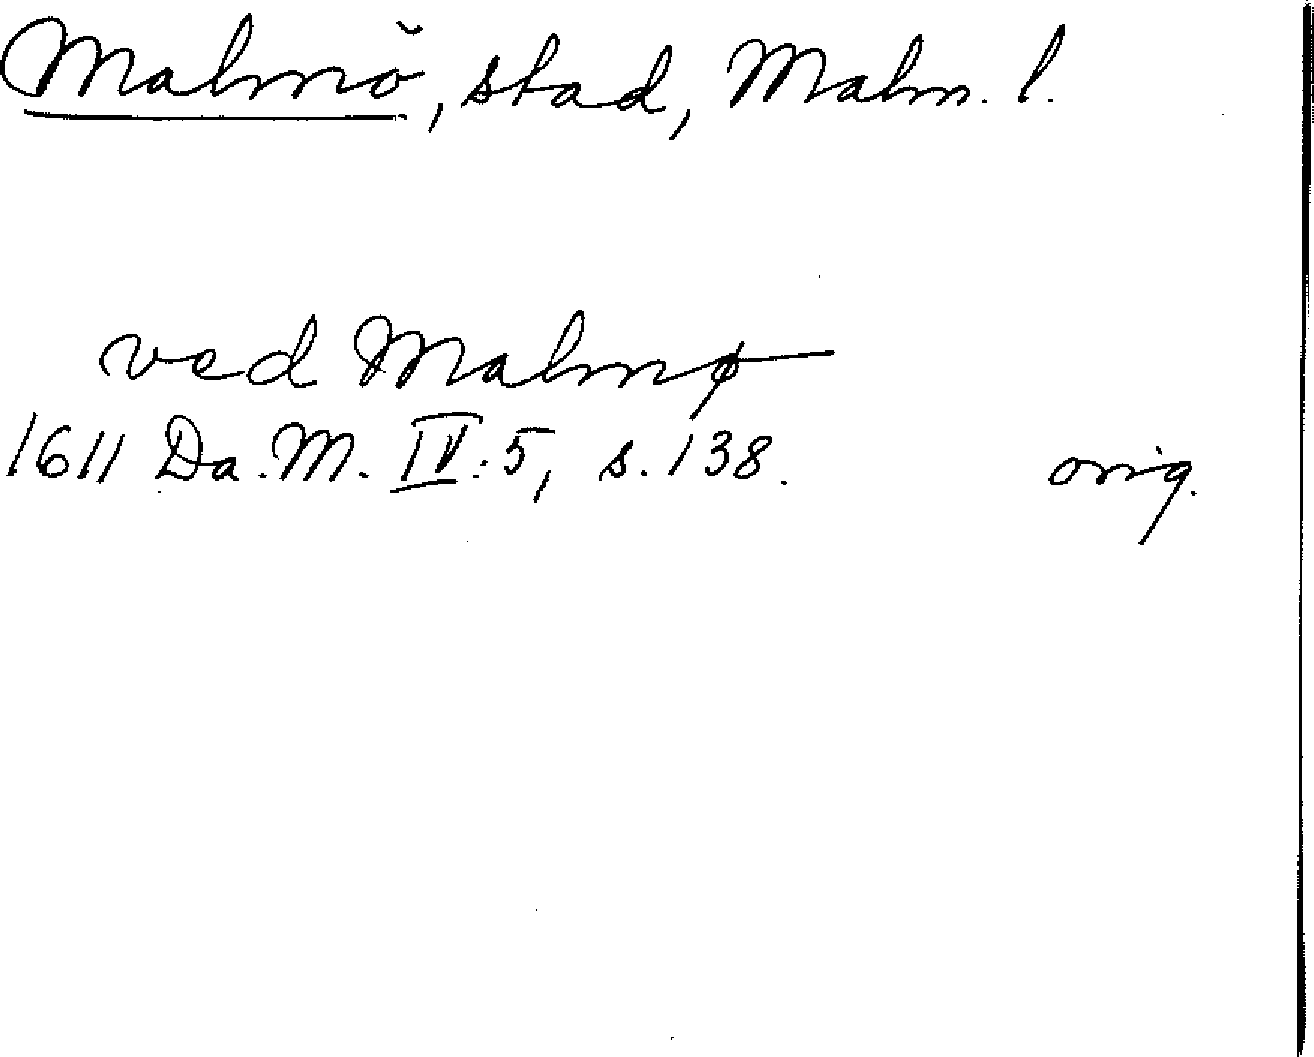 Malmö, stad, Malm. l.
ved Malmø
1611 Da. M. IV: 5, s. 138. orig.